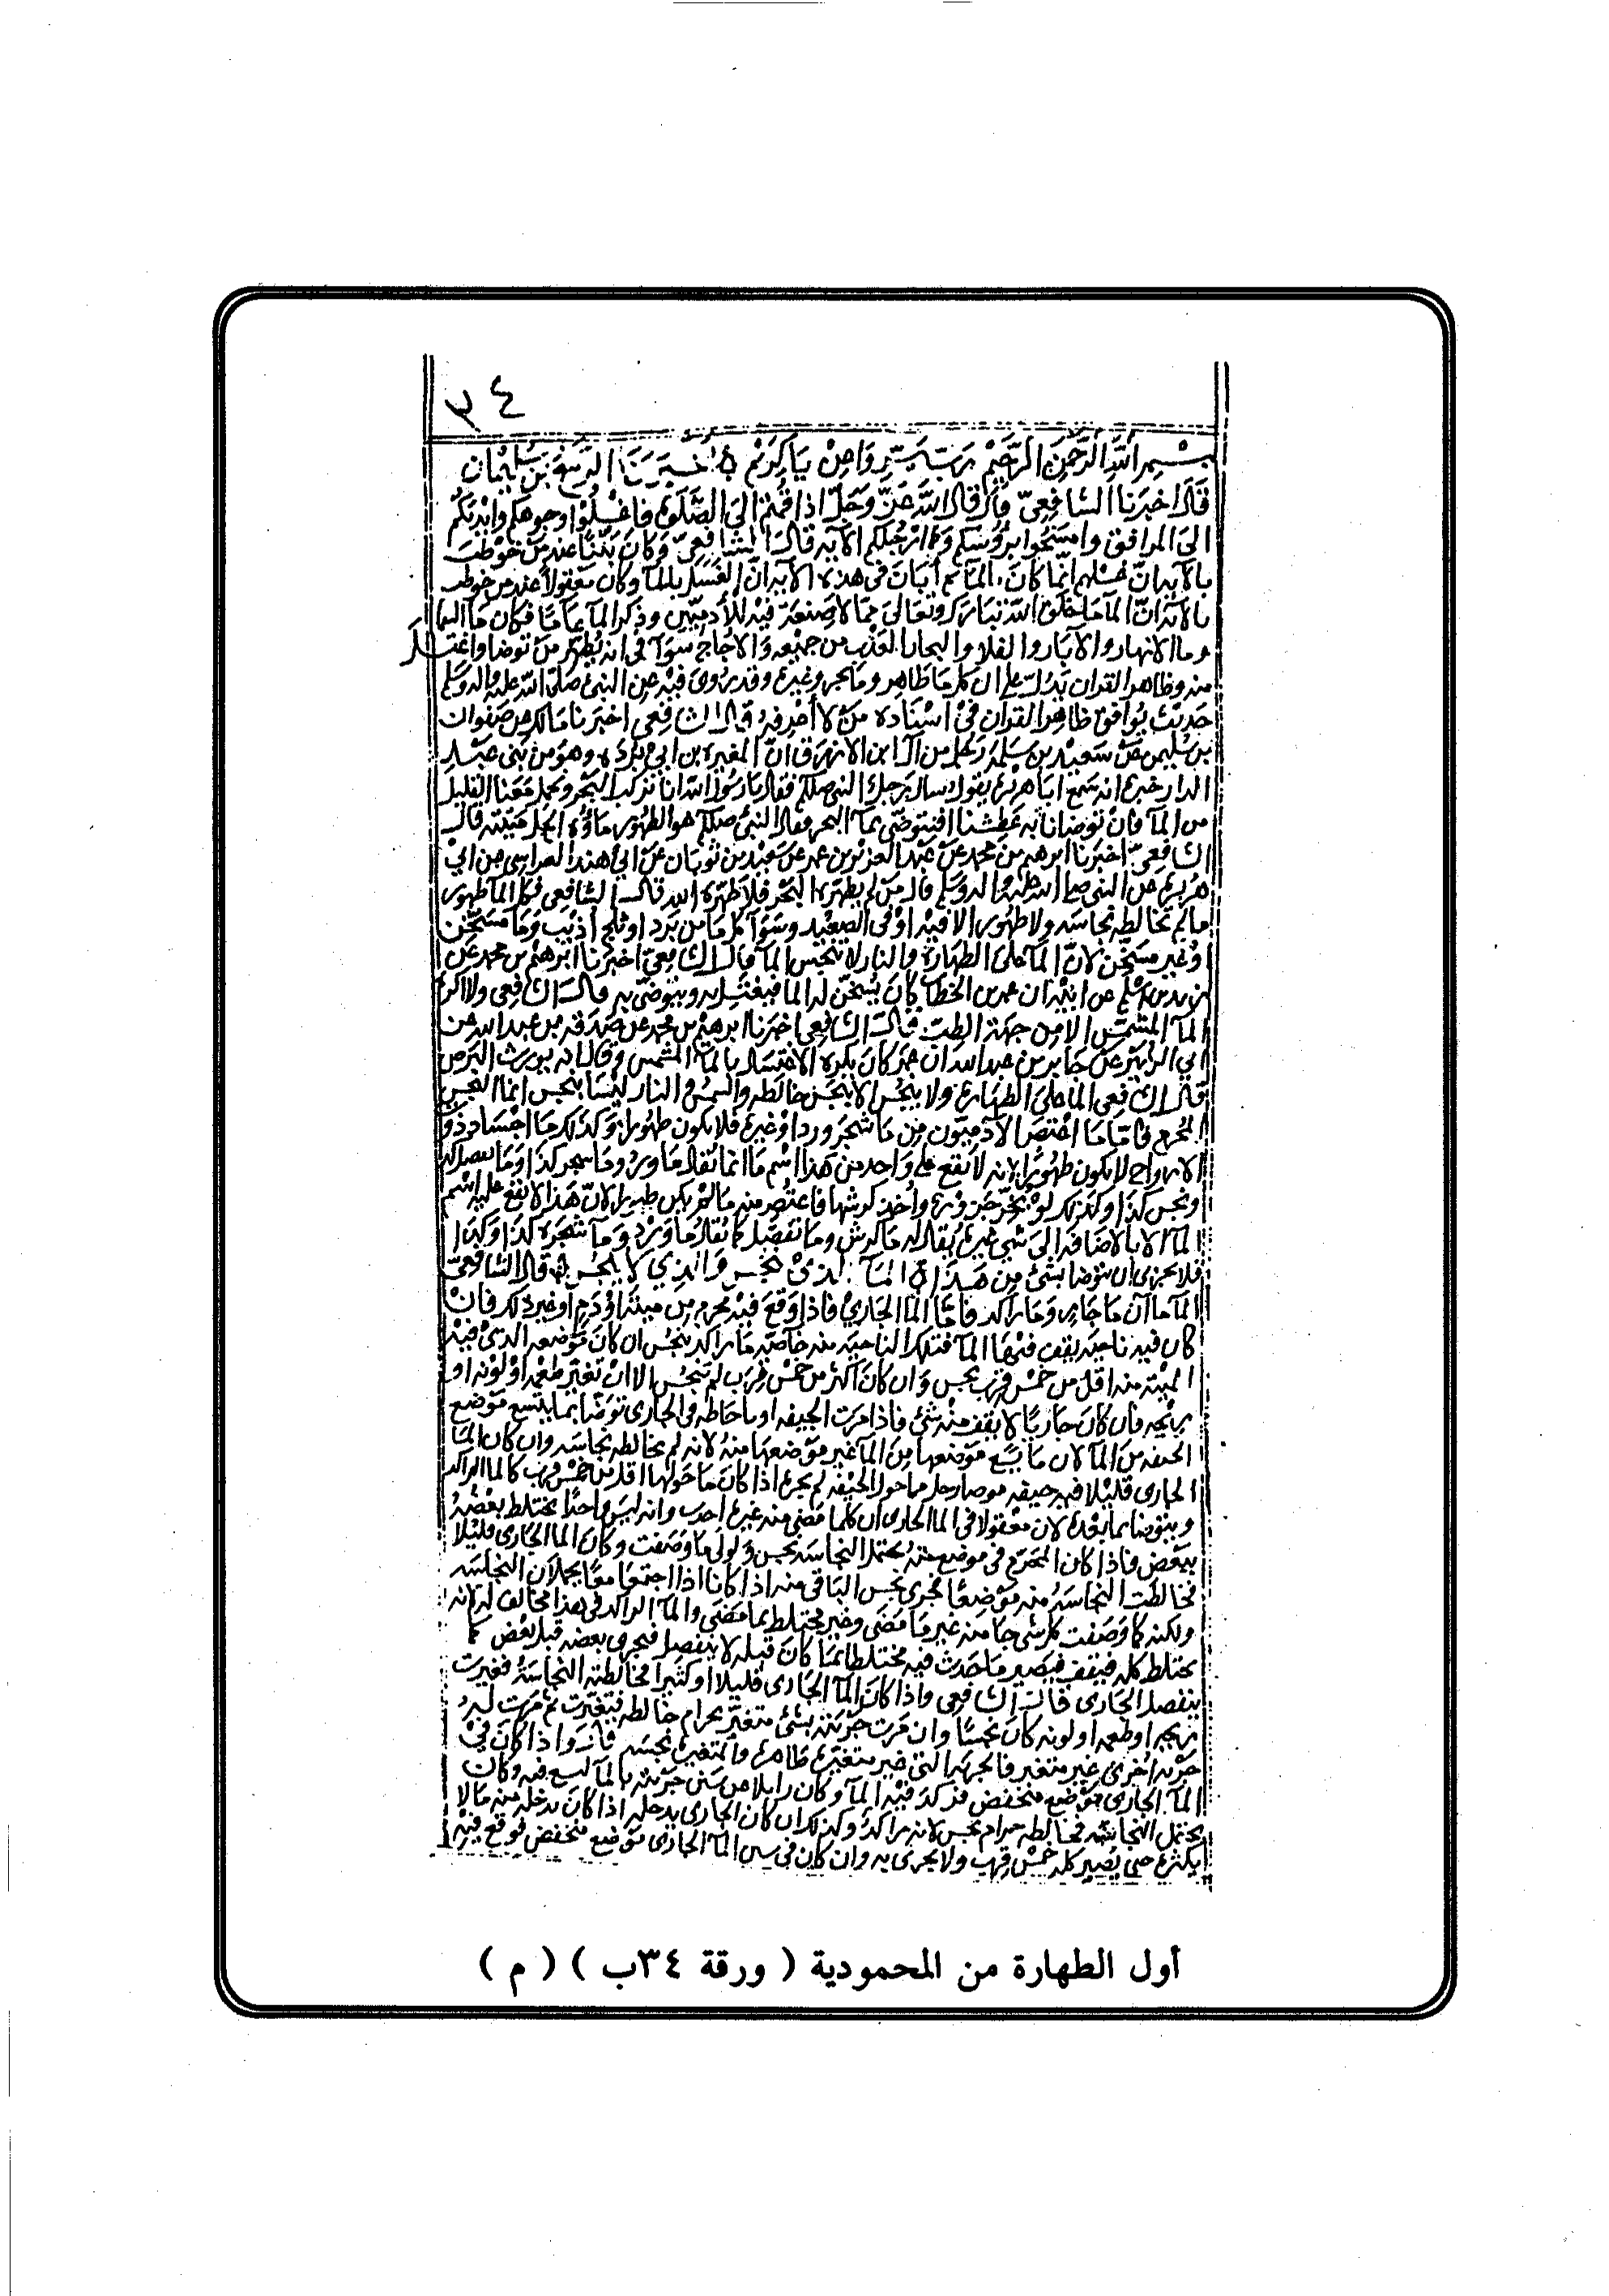 ٣٤
بسم الله الرحمن الرحيم رب يسر واعن يا كريم اخبرنا الربيع بن سليمان
قال اخبرنا الشافعي قال قال الله عز وجل اذا قمتم الى الصلوة فاغسلوا وجوهكم وايديكم
الى المرافق وامسحوا برؤسكم وارجلكم الآية قال الشافعي وكان بينا عند من خوطب
بالآية ان غسلهم انما كان بالماء ثم أبان في هذه الآية ان الغسل بالماء وكان معقولا عند من خوطب
بالآية ان الماء ما خلق الله تبارك وتعالى مما لا صنعة فيه للآدميين وذكر الماء عاما فكان ماء السما
وما الانهار والآبار والقلات والبحار العذب من جميعه والاجاج سوآ في انه يطهر من توضا واغتسل
منه وظاهر القران يدل على ان كل ما طاهر وما بحر وغيره وقد روى فيه عن النبي صلى الله عليه واله وسلم
حديث يوافق ظاهر القران في اسناده من لا أعرفه قال الشافعي اخبرنا مالك عن صفوان
بن سليم عن سعيد بن سلمة رجل من آل ابن الازرق ان المغيرة بن ابي بردة وهو من بني عبد
الدار خبره انه سمع ابا هريرة يقول سال رجل النبي صلعم فقال يا رسول الله انا نركب البحر ونحمل معنا القليل
من الماء فان توضانا به عطشنا افنتوضى بماء البحر فقال النبي صلعم هو الطهور ماؤه الحل ميتته قال
الشافعي اخبرنا ابرهيم بن محمد عن عبد العزيز بن عمر عن سعيد بن ثوبان عن ابي هند الفراسي عن ابي
هريرة عن النبي صلى الله عليه واله وسلم قال من لم يطهره البحر فلا طهره الله قال الشافعي فكل الماء طهور
ما لم تخالطه نجاسة ولا طهور الا فيه او في الصعيد وسوآ كل ما من برد او ثلج اذيب وما مسخن
وغير مسخن لان الماء له الطهارة والنار لا تنجس الماء قال الشافعي اخبرنا ابرهيم بن محمد عن
زيد بن اسلم عن ابيه ان عمر بن الخطاب كان يسخن له الما فيغتسل به ويتوضى به قال الشافعي ولا اكره
الماء المشمس الا من جهة الطب قال الشافعي اخبرنا ابرهيم بن محمد عن صدقة بن عبد الله عن
ابي الزبير عن جابر بن عبد الله ان عمر كان يكره الاغتسال بالماء المشمس وقال انه يورث البرص
قال الشافعي الما على الطهارة ولا ينجس الا بنجس خالطه والشمس والنار ليسا بنجس انما النجس
المحرم فاما ما اعتصر الآدميون من ما شجر ورد او غيره فلا يكون طهورا وكذلك ما اجساد ذوات
الارواح لا يكون طهورا لانه لا يقع على واحد من هذا اسم ما انما يقال ما ورد وما شجر كذا وما مفصل كذا
وجسد كذا وكذلك لو نحر جزورا واخذ كرشها فاعتصر منه ما لم يكن طهورا لان هذا لا يقع عليه اسم
الما الا بالاضافة الى شي غيره يقال له ما كرش وما مفصل كما يقال ما ورد وما شجره كذا وكذا
فلا يجزي ان يتوضا بشئ من هذا الماء الذي ينجس والذي لا ينجس قال الشافعي
الماء ماآن ما جاري وما راكد فاما الما الجاري فاذا وقع فيه محرم من ميتة او دم او غير ذلك فان
كان فيه ناحية يقف فيها الماء فتلك الناحية منه خاصة ما راكد ينجس ان كان موضعه الذي فيه
الميتة منه اقل من خمس قرب نجس وان كان اكثر من خمس قرب لم ينجس الا ان تغير طعمه او لونه او
ريحه فان كان جاريا لا يقف منه شئ فاذا مرت الجيفة او ما خالطه في الجاري توضا بما يتبع موضع
الجيفة من الماء لان ما يتبع موضعها من الماء غير موضعها منه لانه لم يخالطه نجاسة وان كان الما
الجاري قليلا فيه جيفة فتوضا رجل مما حول الجيفة لم يجزه اذا كان ما حولها اقل من خمس قرب كالما الراكد
ويتوضا بما بعده لان معقولا في الما الجاري ان كلما مضى منه غير ما حدث وانه ليس واحدا يختلط بعضه
ببعض فاذا كان المحرم في موضع منه يحتمل النجاسة نجس ولولى ما وصفت وكان الما الجاري قليلا
فخالطت النجاسة منه موضعا فجرى نجس الباقي منه اذا كانا اذا اجتمعا معا يحملان النجاسة
ولكنه كما وصفت كل شي جا منه غير ما مضى وغير مختلط بما مضى والماء الراكد في هذا مخالف له لانه
يختلط كله فيقف فيصير ما حدث فيه مختلطا بما كان قبله لا ينفصل فيجري بعضه قبل بعض كما
ينفصل الجاري قال الشافعي واذا كان الماء الجاري قليلا او كثيرا فخالطته النجاسة فغيرت
ريحه او طعمه او لونه كان نجسا وان مرت جريته بشئ متغير بحرام خالطه فتغيرت ثم مرت له
جرية اخرى غير متغيرة فالجرية التي غير متغيرة طاهرة والمتغيرة نجسه قال واذا كان في
الماء الجاري موضع منخفض فركد فيه الماء وكان زايلا عن سنن جريته بالماء يستنقع فيه وكان
يحتمل النجاسة فخالطه حرام نجس لانه راكد وكذلك ان كان الجاري يدخله اذا كان يدخله منه ما لا
يكثره حتى يصير كله خمس قرب ولا يجري به وان كان في سنن الماء الجاري موضع منخفض فوقع فيه
أول الطهارة من المحمودية ( ورقة ٣٤ب ) ( م )